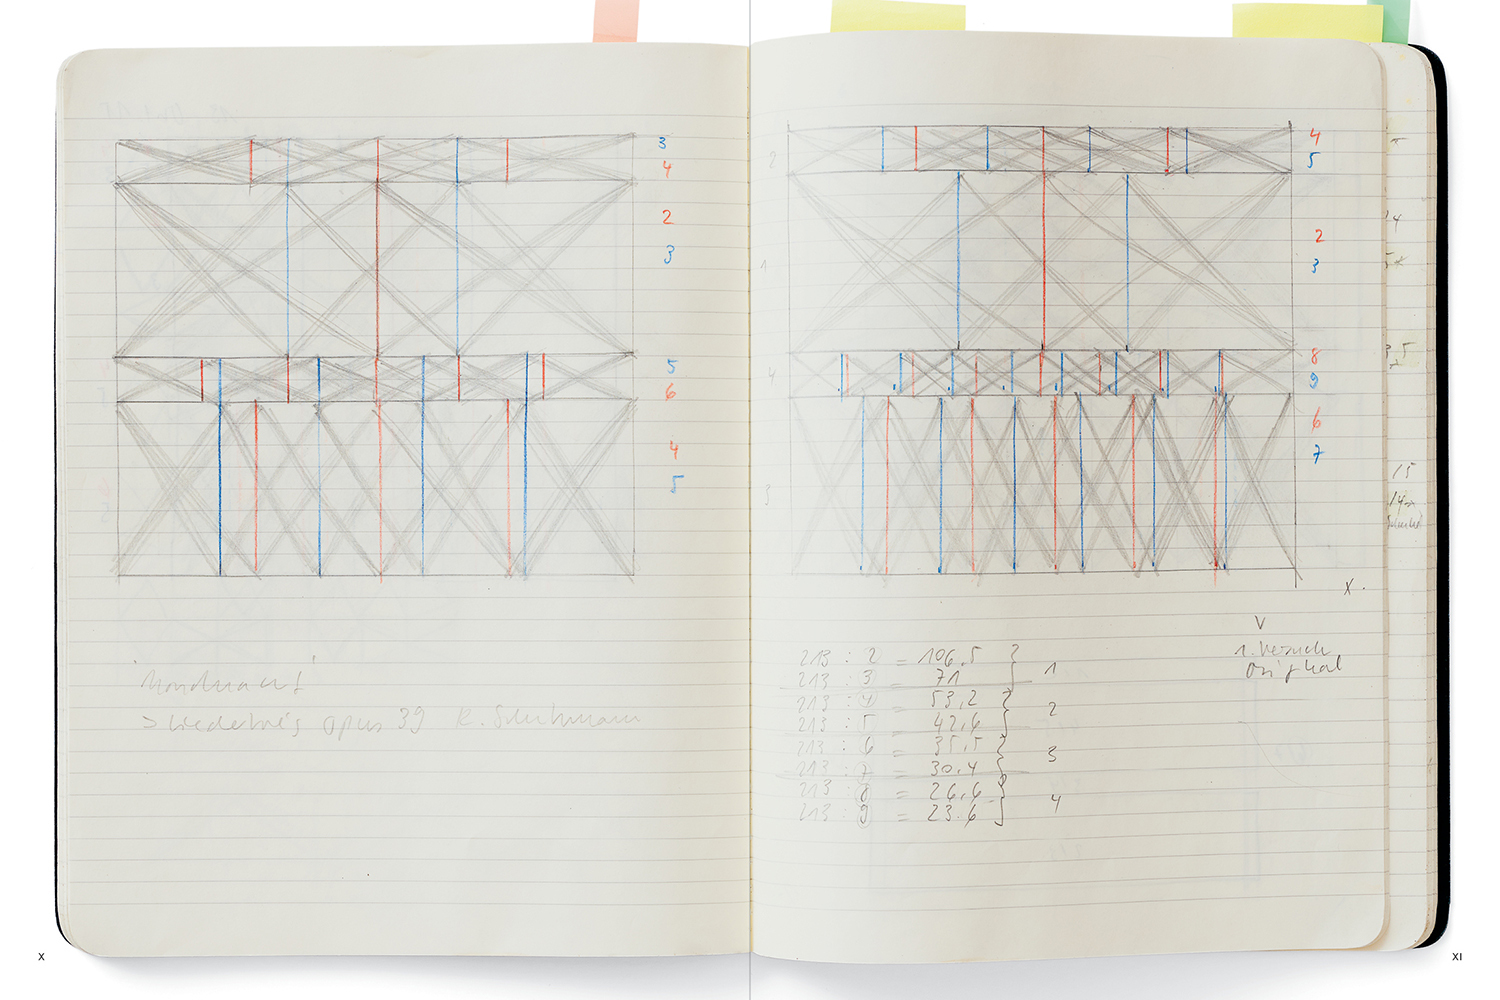 3
4
2
3
5
6
4
5
'Mondnacht'
> Liederkreis opus 39 R. Schumann
X
4
5
2
3
8
9
6
7
2
1
4
3
X.
V
1. Versuch
Original
213 : 2 = 106,5
213 : 3 = 71
1
213 : 4 = 53,2
213 : 5 = 42,6
2
213 : 6 = 35,5
213 : 7 = 30,4
3
213 : 8 = 26,6
213 : 9 = 23.6
4
15
14
XI